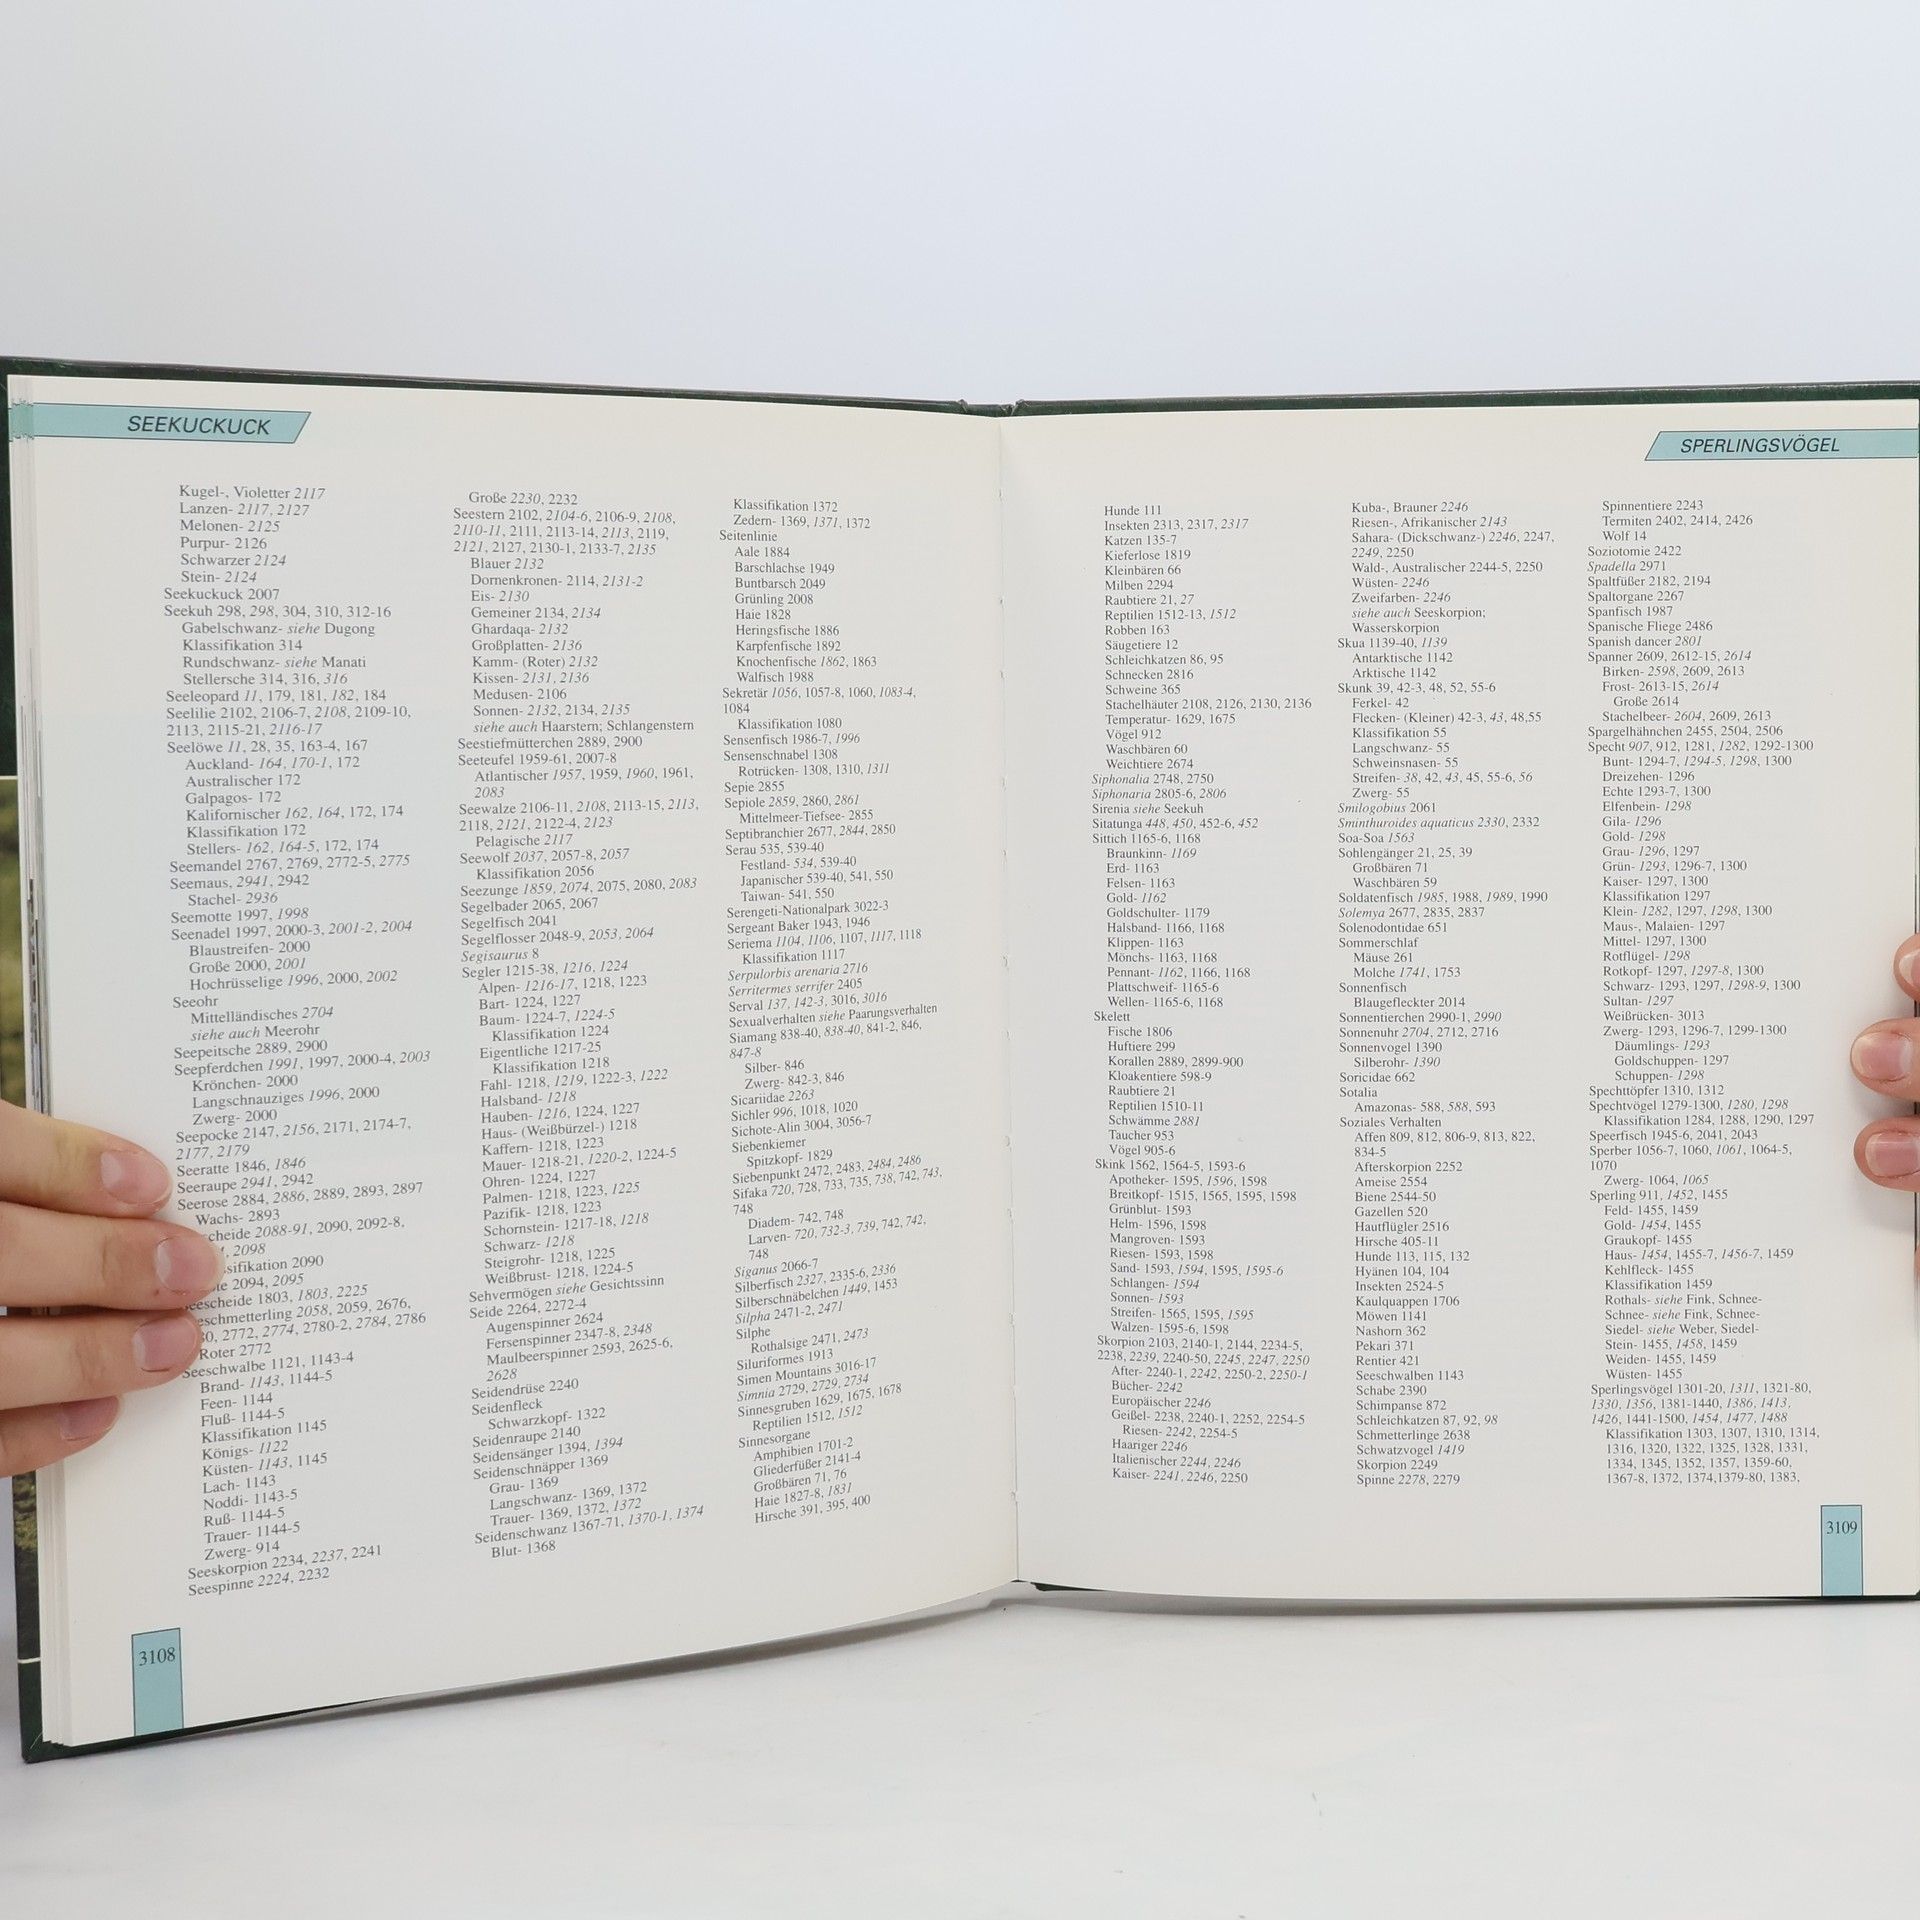 SEEKUCKUCK
Kugel-, Violetter 2117
Lanzen- 2117, 2127
Melonen- 2125
Purpur- 2126
Schwarzer 2124
Stein- 2124
Seekuckuck 2007
Seekuh 298, 298, 304, 310, 312-16
Gabelschwanz- siehe Dugong
Klassifikation 314
Rundschwanz- siehe Manati
Stellersche 314, 316, 316
Seeleopard 11, 179, 181, 182, 184
Seelilie 2102, 2106-7, 2108, 2109-10,
2113, 2115-21, 2116-17
Seelöwe 11, 28, 35, 163-4, 167
Auckland- 164, 170-1, 172
Australischer 172
Galpagos- 172
Kalifornischer 162, 164, 172, 174
Klassifikation 172
Stellers- 162, 164-5, 172, 174
Seemandel 2767, 2769, 2772-5, 2775
Seemaus, 2941, 2942
Stachel- 2936
Seemotte 1997, 1998
Seenadel 1997, 2000-3, 2001-2, 2004
Blaustreifen- 2000
Große 2000, 2001
Hochrüsselige 1996, 2000, 2002
Seeohr
Mittelländisches 2704
siehe auch Meerohr
Seepeitsche 2889, 2900
Seepferdchen 1991, 1997, 2000-4, 2003
Krönchen- 2000
Langschnauziges 1996, 2000
Zwerg- 2000
Seepocke 2147, 2156, 2171, 2174-7,
2177, 2179
Seeratte 1846, 1846
Seeraupe 2941, 2942
Seerose 2884, 2886, 2889, 2893, 2897
Wachs- 2893
cheide 2088-91, 2090, 2092-8,
2098
sifikation 2090
te 2094, 2095
eescheide 1803, 1803, 2225
eschmetterling 2058, 2059, 2676,
80, 2772, 2774, 2780-2, 2784, 2786
Roter 2772
Seeschwalbe 1121, 1143-4
Brand- 1143, 1144-5
Feen- 1144
Fluß- 1144-5
Klassifikation 1145
Königs- 1122
Küsten- 1143, 1145
Lach- 1143
Noddi- 1143-5
Ruß- 1144-5
Trauer- 1144-5
Zwerg- 914
Seeskorpion 2234, 2237, 2241
Seespinne 2224, 2232
Große 2230, 2232
Seestern 2102, 2104-6, 2106-9, 2108,
2110-11, 2111, 2113-14, 2113, 2119,
2121, 2127, 2130-1, 2133-7, 2135
Blauer 2132
Dornenkronen- 2114, 2131-2
Eis- 2130
Gemeiner 2134, 2134
Ghardaqa- 2132
Großplatten- 2136
Kamm- (Roter) 2132
Kissen- 2131, 2136
Medusen- 2106
Sonnen- 2132, 2134, 2135
siehe auch Haarstern; Schlangenstern
Seestiefmütterchen 2889, 2900
Seeteufel 1959-61, 2007-8
Atlantischer 1957, 1959, 1960, 1961,
2083
Seewalze 2106-11, 2108, 2113-15, 2113,
2118, 2121, 2122-4, 2123
Pelagische 2117
Seewolf 2037, 2057-8, 2057
Klassifikation 2056
Seezunge 1859, 2074, 2075, 2080, 2083
Segelbader 2065, 2067
Segelfisch 2041
Segelflosser 2048-9, 2053, 2064
Segisaurus 8
Segler 1215-38, 1216, 1224
Alpen- 1216-17, 1218, 1223
Bart- 1224, 1227
Baum- 1224-7, 1224-5
Klassifikation 1224
Eigentliche 1217-25
Klassifikation 1218
Fahl- 1218, 1219, 1222-3, 1222
Halsband- 1218
Hauben- 1216, 1224, 1227
Haus- (Weißbürzel-) 1218
Kaffern- 1218, 1223
Mauer- 1218-21, 1220-2, 1224-5
Ohren- 1224, 1227
Palmen- 1218, 1223, 1225
Pazifik- 1218, 1223
Schornstein- 1217-18, 1218
Schwarz- 1218
Steigrohr- 1218, 1225
Weißbrust- 1218, 1224-5
Sehvermögen siehe Gesichtssinn
Seide 2264, 2272-4
Augenspinner 2624
Fersenspinner 2347-8, 2348
Maulbeerspinner 2593, 2625-6,
2628
Seidendrüse 2240
Seidenfleck
Schwarzkopf- 1322
Seidenraupe 2140
Seidensänger 1394, 1394
Seidenschnäpper 1369
Grau- 1369
Langschwanz- 1369, 1372
Trauer- 1369, 1372, 1372
Seidenschwanz 1367-71, 1370-1, 1374
Blut- 1368
Klassifikation 1372
Zedern- 1369, 1371, 1372
Seitenlinie
Aale 1884
Barschlachse 1949
Buntbarsch 2049
Grünling 2008
Haie 1828
Heringsfische 1886
Karpfenfische 1892
Knochenfische 1862, 1863
Walfisch 1988
Sekretär 1056, 1057-8, 1060, 1083-4,
1084
Klassifikation 1080
Sensenfisch 1986-7, 1996
Sensenschnabel 1308
Rotrücken- 1308, 1310, 1311
Sepie 2855
Sepiole 2859, 2860, 2861
Mittelmeer-Tiefsee- 2855
Septibranchier 2677, 2844, 2850
Serau 535, 539-40
Festland- 534, 539-40
Japanischer 539-40, 541, 550
Taiwan- 541, 550
Serengeti-Nationalpark 3022-3
Sergeant Baker 1943, 1946
Seriema 1104, 1106, 1107, 1117, 1118
Klassifikation 1117
Serpulorbis arenaria 2716
Serritermes serrifer 2405
Serval 137, 142-3, 3016, 3016
Sexualverhalten siehe Paarungsverhalten
Siamang 838-40, 838-40, 841-2, 846,
847-8
Silber- 846
Zwerg- 842-3, 846
Sicariidae 2263
Sichler 996, 1018, 1020
Sichote-Alin 3004, 3056-7
Siebenkiemer
Spitzkopf- 1829
Siebenpunkt 2472, 2483, 2484, 2486
Sifaka 720, 728, 733, 735, 738, 742, 743,
748
Diadem- 742, 748
Larven- 720, 732-3, 739, 742, 742,
748
Siganus 2066-7
Silberfisch 2327, 2335-6, 2336
Silberschnäbelchen 1449, 1453
Silpha 2471-2, 2471
Silphe
Rothalsige 2471, 2473
Siluriformes 1913
Simen Mountains 3016-17
Simnia 2729, 2729, 2734
Sinnesgruben 1629, 1675, 1678
Reptilien 1512, 1512
Sinnesorgane
Amphibien 1701-2
Gliederfüßer 2141-4
Großbären 71, 76
Haie 1827-8, 1831
Hirsche 391, 395, 400
3108
SPERLINGSVÖGEL
Hunde 111
Insekten 2313, 2317, 2317
Katzen 135-7
Kieferlose 1819
Kleinbären 66
Milben 2294
Raubtiere 21, 27
Reptilien 1512-13, 1512
Robben 163
Säugetiere 12
Schleichkatzen 86, 95
Schnecken 2816
Schweine 365
Stachelhäuter 2108, 2126, 2130, 2136
Temperatur- 1629, 1675
Vögel 912
Waschbären 60
Weichtiere 2674
Siphonalia 2748, 2750
Siphonaria 2805-6, 2806
Sirenia siehe Seekuh
Sitatunga 448, 450, 452-6, 452
Sittich 1165-6, 1168
Braunkinn- 1169
Erd- 1163
Felsen- 1163
Gold- 1162
Goldschulter- 1179
Halsband- 1166, 1168
Klippen- 1163
Mönchs- 1163, 1168
Pennant- 1162, 1166, 1168
Plattschweif- 1165-6
Wellen- 1165-6, 1168
Skelett
Fische 1806
Huftiere 299
Korallen 2889, 2899-900
Kloakentiere 598-9
Raubtiere 21
Reptilien 1510-11
Schwämme 2881
Taucher 953
Vögel 905-6
Skink 1562, 1564-5, 1593-6
Apotheker- 1595, 1596, 1598
Breitkopf- 1515, 1565, 1595, 1598
Grünblut- 1593
Helm- 1596, 1598
Mangroven- 1593
Riesen- 1593, 1598
Sand- 1593, 1594, 1595, 1595-6
Schlangen- 1594
Sonnen- 1593
Streifen- 1565, 1595, 1595
Walzen- 1595-6, 1598
Skorpion 2103, 2140-1, 2144, 2234-5,
2238, 2239, 2240-50, 2245, 2247, 2250
After- 2240-1, 2242, 2250-2, 2250-1
Bücher- 2242
Europäischer 2246
Geißel- 2238, 2240-1, 2252, 2254-5
Riesen- 2242, 2254-5
Haariger 2246
Italienischer 2244, 2246
Kaiser- 2241, 2246, 2250
Kuba-, Brauner 2246
Riesen-, Afrikanischer 2143
Sahara- (Dickschwanz-) 2246, 2247,
2249, 2250
Wald-, Australischer 2244-5, 2250
Wüsten- 2246
Zweifarben- 2246
siehe auch Seeskorpion;
Wasserskorpion
Skua 1139-40, 1139
Antarktische 1142
Arktische 1142
Skunk 39, 42-3, 48, 52, 55-6
Ferkel- 42
Flecken- (Kleiner) 42-3, 43, 48,55
Klassifikation 55
Langschwanz- 55
Schweinsnasen- 55
Streifen- 38, 42, 43, 45, 55-6, 56
Zwerg- 55
Smilogobius 2061
Sminthuroides aquaticus 2330, 2332
Soa-Soa 1563
Sohlengänger 21, 25, 39
Großbären 71
Waschbären 59
Soldatenfisch 1985, 1988, 1989, 1990
Solemya 2677, 2835, 2837
Solenodontidae 651
Sommerschlaf
Mäuse 261
Molche 1741, 1753
Sonnenfisch
Blaugefleckter 2014
Sonnentierchen 2990-1, 2990
Sonnenuhr 2704, 2712, 2716
Sonnenvogel 1390
Silberohr- 1390
Soricidae 662
Sotalia
Amazonas- 588, 588, 593
Soziales Verhalten
Affen 809, 812, 806-9, 813, 822,
834-5
Afterskorpion 2252
Ameise 2554
Biene 2544-50
Gazellen 520
Hautflügler 2516
Hirsche 405-11
Hunde 113, 115, 132
Hyänen 104, 104
Insekten 2524-5
Kaulquappen 1706
Möwen 1141
Nashorn 362
Pekari 371
Rentier 421
Seeschwalben 1143
Schabe 2390
Schimpanse 872
Schleichkatzen 87, 92, 98
Schmetterlinge 2638
Schwatzvogel 1419
Skorpion 2249
Spinne 2278, 2279
Spinnentiere 2243
Termiten 2402, 2414, 2426
Wolf 14
Soziotomie 2422
Spadella 2971
Spaltfüßer 2182, 2194
Spaltorgane 2267
Spanfisch 1987
Spanische Fliege 2486
Spanish dancer 2801
Spanner 2609, 2612-15, 2614
Birken- 2598, 2609, 2613
Frost- 2613-15, 2614
Große 2614
Stachelbeer- 2604, 2609, 2613
Spargelhähnchen 2455, 2504, 2506
Specht 907, 912, 1281, 1282, 1292-1300
Bunt- 1294-7, 1294-5, 1298, 1300
Dreizehen- 1296
Echte 1293-7, 1300
Elfenbein- 1298
Gila- 1296
Gold- 1298
Grau- 1296, 1297
Grün- 1293, 1296-7, 1300
Kaiser- 1297, 1300
Klassifikation 1297
Klein- 1282, 1297, 1298, 1300
Maus-, Malaien- 1297
Mittel- 1297, 1300
Rotflügel- 1298
Rotkopf- 1297, 1297-8, 1300
Schwarz- 1293, 1297, 1298-9, 1300
Sultan- 1297
Weißrücken- 3013
Zwerg- 1293, 1296-7, 1299-1300
Däumlings- 1293
Goldschuppen- 1297
Schuppen- 1298
Spechttöpfer 1310, 1312
Spechtvögel 1279-1300, 1280, 1298
Klassifikation 1284, 1288, 1290, 1297
Speerfisch 1945-6, 2041, 2043
Sperber 1056-7, 1060, 1061, 1064-5,
1070
Zwerg- 1064, 1065
Sperling 911, 1452, 1455
Feld- 1455, 1459
Gold- 1454, 1455
Graukopf- 1455
Haus- 1454, 1455-7, 1456-7, 1459
Kehlfleck- 1455
Klassifikation 1459
Rothals- siehe Fink, Schnee-
Schnee- siehe Fink, Schnee-
Siedel- siehe Weber, Siedel-
Stein- 1455, 1458, 1459
Weiden- 1455, 1459
Wüsten- 1455
Sperlingsvögel 1301-20, 1311, 1321-80,
1330, 1356, 1381-1440, 1386, 1413,
1426, 1441-1500, 1454, 1477, 1488
Klassifikation 1303, 1307, 1310, 1314,
1316, 1320, 1322, 1325, 1328, 1331,
1334, 1345, 1352, 1357, 1359-60,
1367-8, 1372, 1374,1379-80, 1383,
3109